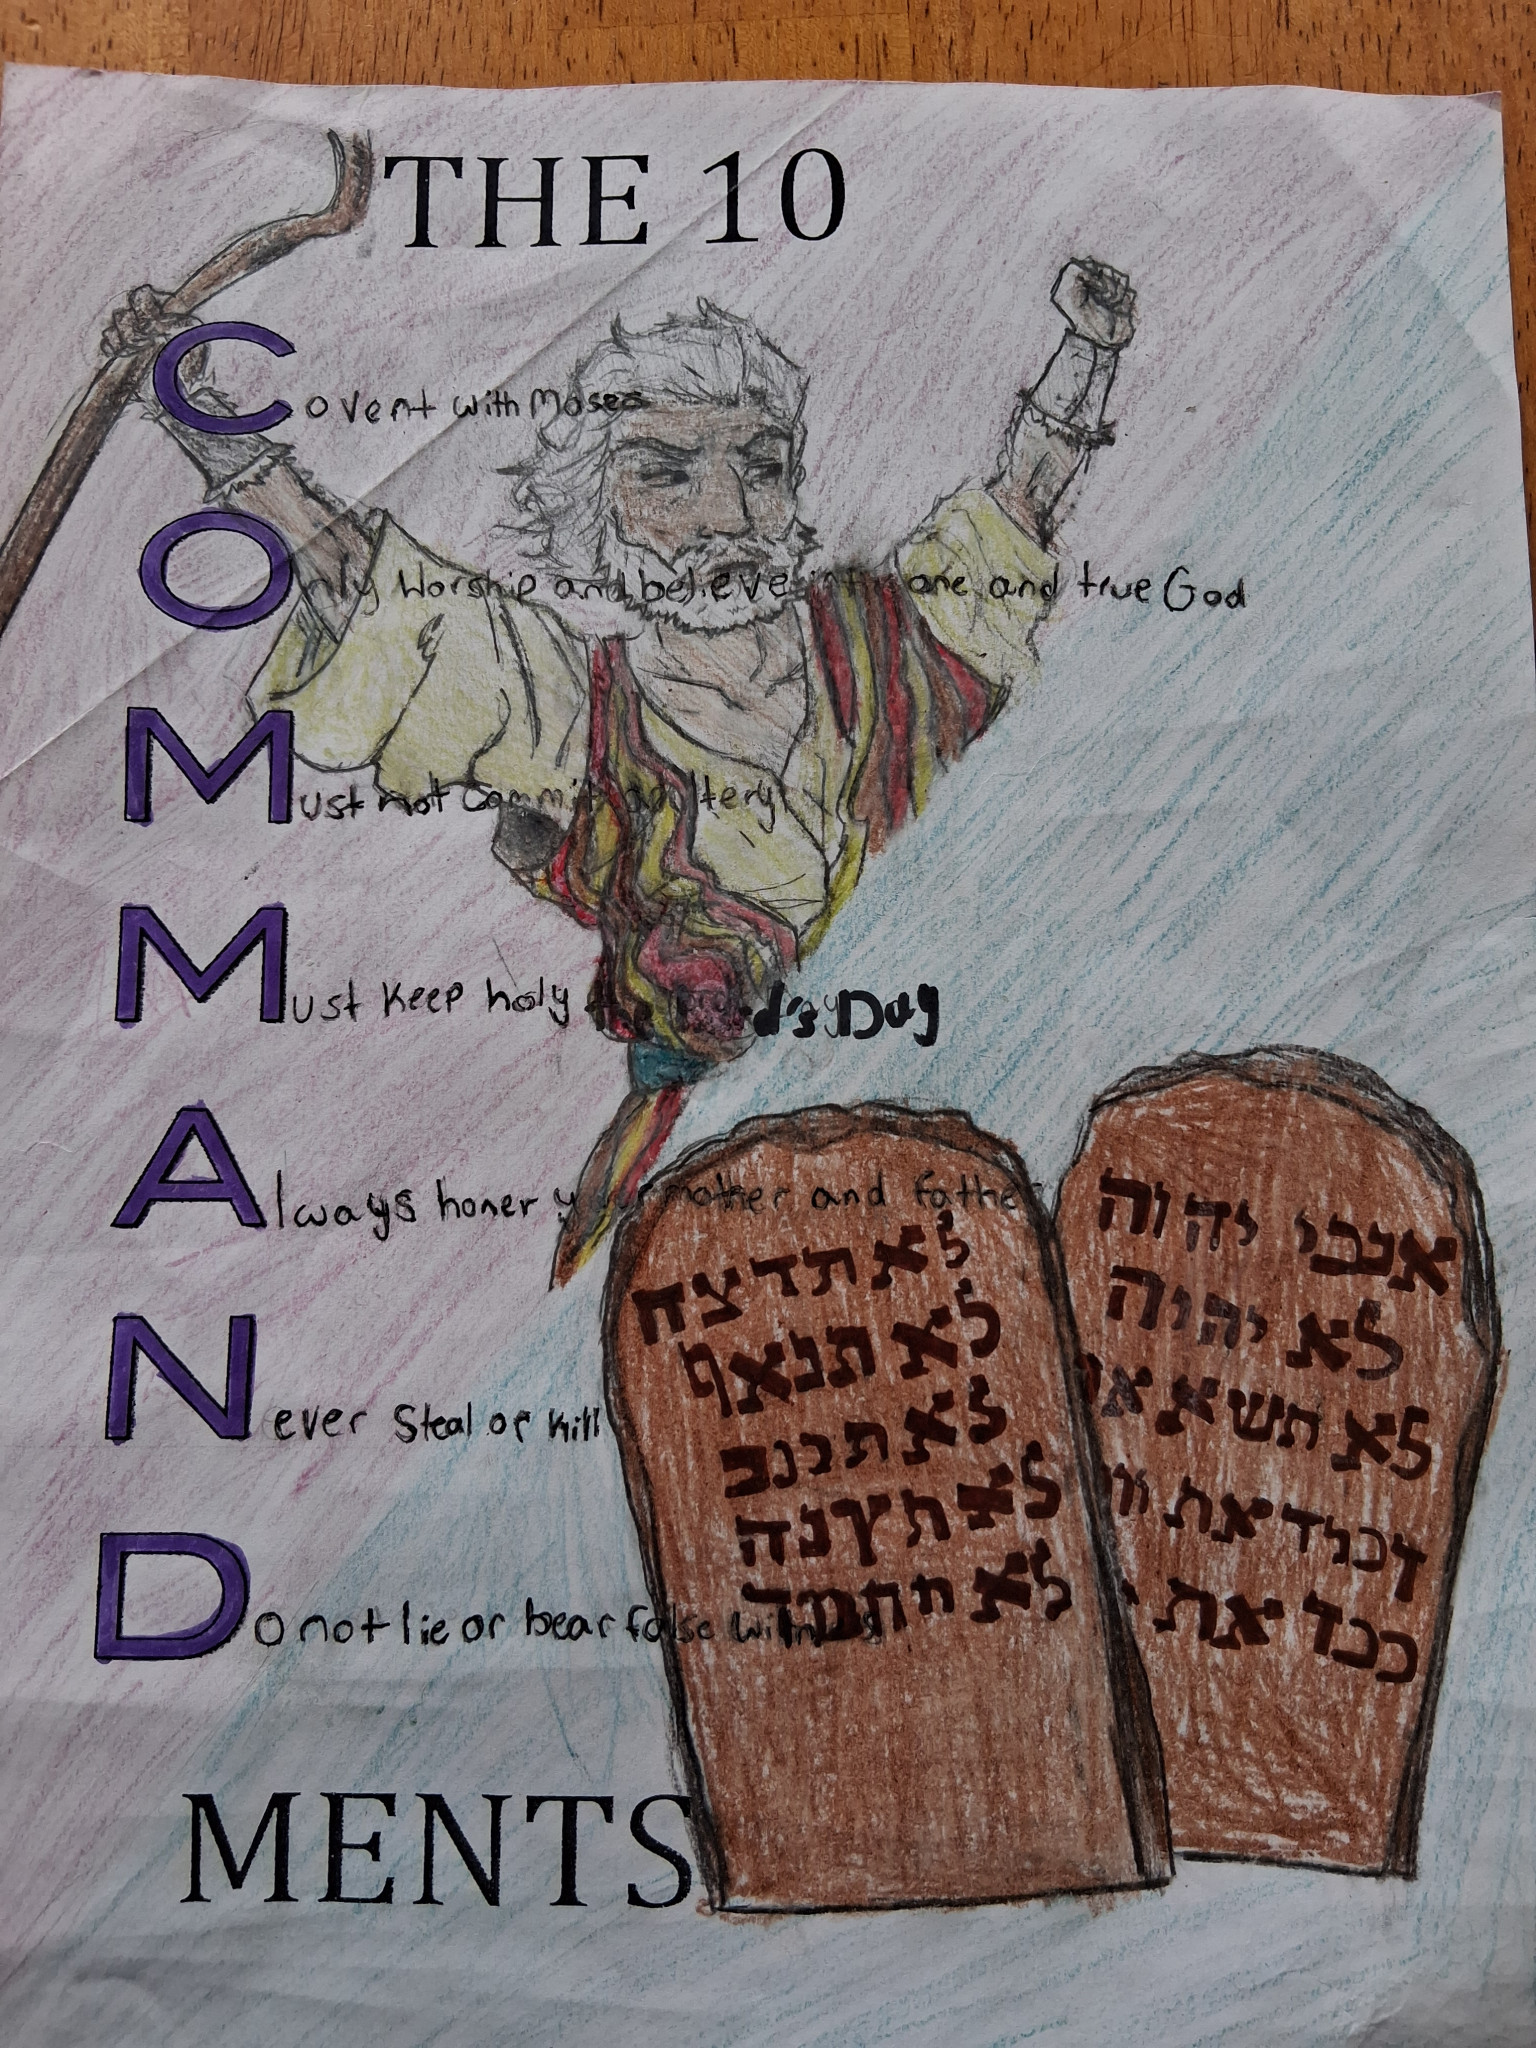 THE 10
Covent with Moses
Only Worship and believe in the one and true God
Must not Commit adultery
Must Keep holy the Lord's Day
Always honer your mother and father
Never Steal or Kill
Do not lie or bear false witness
MENTS
אנכי יהוה
לא יהיה
לא תשא את
זכור את
כבד את
לא תרצח
לא תנאף
לא תכנב
לא תענה
לא תחמד